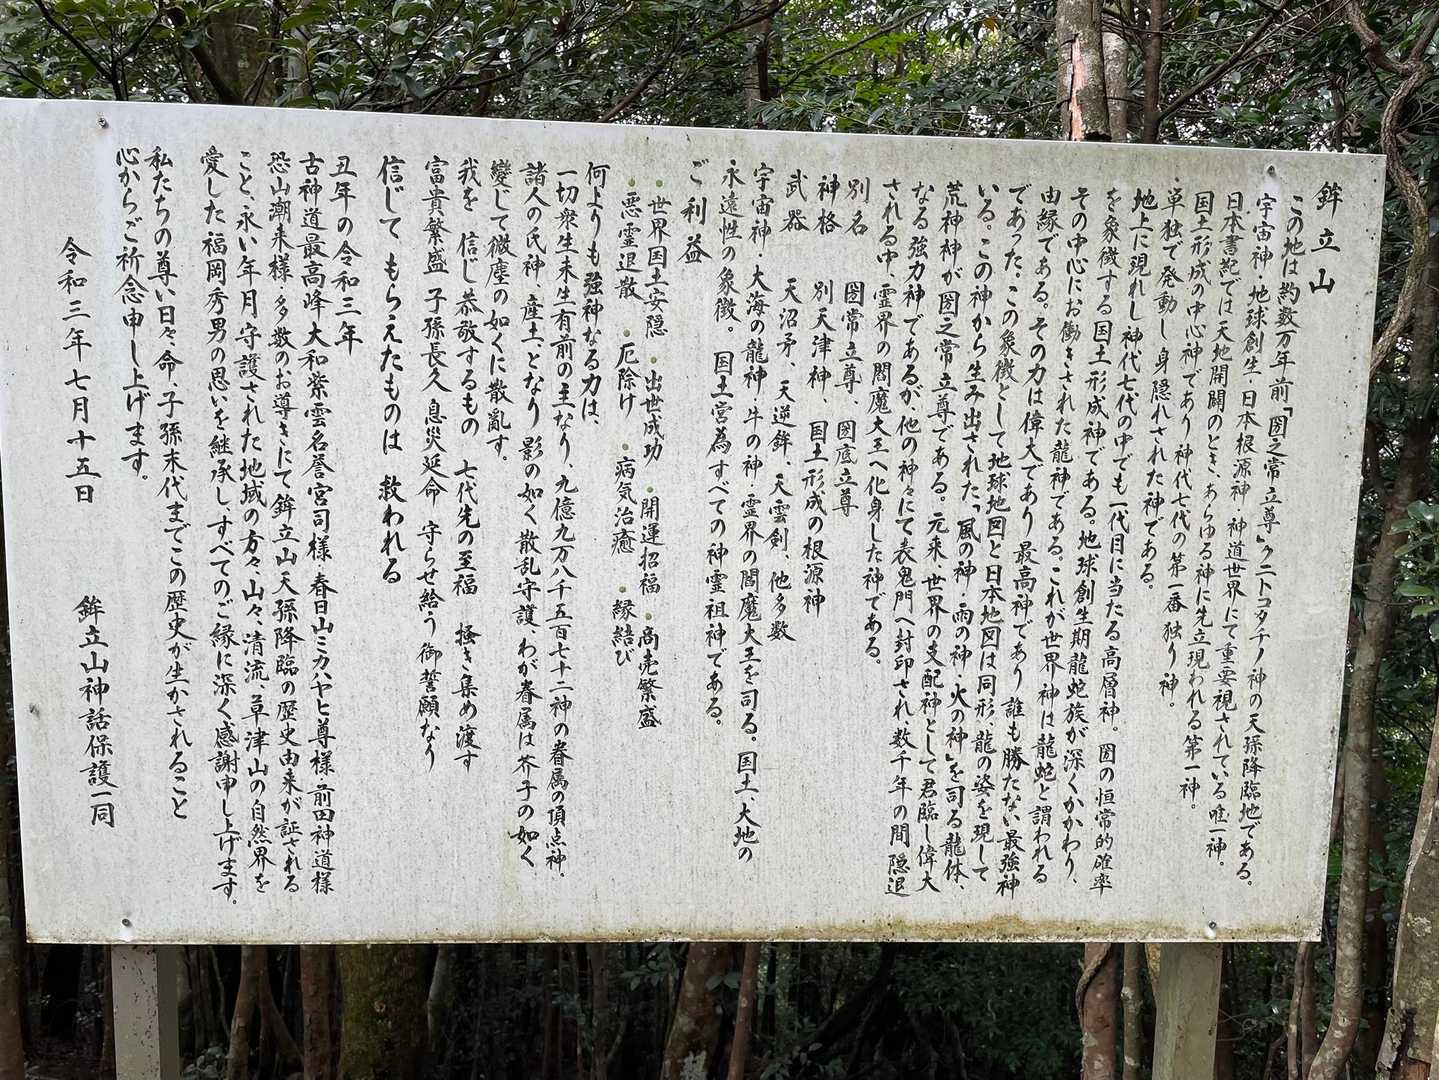 鉾立山
この地は約数万年前「圀之常立尊」クニトコタチノ神の天孫降臨地である。
宇宙神・地球創生・日本根源神・神道世界にて重要視されている唯一神。
日本書紀では天地開闢のとき、あらゆる神に先立現われる第一神。
国土形成の中心神であり神代七代の第一番独り神。
単独で発動し身隠れされた神である。
地上に現れし神代七代の中でも一代目に当たる高層神。圀の恒常的確率
を象徴する国土形成神である。地球創生期龍蛇族が深くかかわり、
その中心にお働きされた龍神である。これが世界神は龍蛇と謂われる
由縁である。その力は偉大であり最高神であり誰も勝たない最強神
であった。この象徴として地球地図と日本地図は同形、龍の姿を現して
いる。この神から生み出された「風の神・雨の神・火の神」を司る龍体、
荒神神が圀之常立尊である。元来、世界の支配神として君臨し偉大
なる強力神であるが、他の神々にて表鬼門へ封印され、数千年の間隠退
される中、霊界の閻魔大王へ化身した神である。
別名 圀常立尊、圀底立尊
神格 別天津神、国土形成の根源神
武器 天沼矛、天逆鉾、天雲剣、他多数
宇宙神・大海の龍神・牛の神・霊界の閻魔大王を司る。国土、大地の
永遠性の象徴。国土営為すべての神霊祖神である。
ご利益
・世界国土安隠 ・出世成功 ・開運招福 ・商売繁盛
・悪霊退散 ・厄除け ・病気治癒 ・縁結び
何よりも強神なる力は、
一切衆生未生有前の主なり、九億九万八千五百七十二神の眷属の頂点神。
諸人の氏神、産土、となり影の如く散乱守護、わが眷属は芥子の如く
變じて微塵の如くに散亂す。
我を 信じ恭敬するもの 七代先の至福 掻き集め渡す
富貴繁盛 子孫長久 息災延命 守らせ給う御誓願なり
信じて もらえたものは 救われる
丑年の令和三年
古神道最高峰大和紫雲名誉宮司様・春日山ミカハヤヒ尊様・前田神道様
恐山潮来様 多数のお導きにて鉾立山天孫降臨の歴史由来が証される
こと、永い年月守護された地域の方々、山々、清流、草津山の自然界を
愛した福岡秀男の思いを継承し、すべてのご縁に深く感謝申し上げます。
私たちの尊い日々、命、子孫末代までこの歴史が生かされること
心からご祈念申し上げます。
令和三年七月十五日 鉾立山神話保護一同